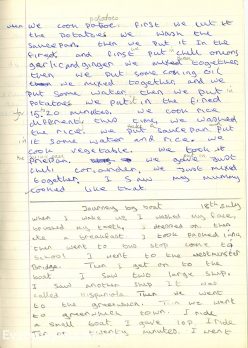 potatoes
when we cook potatoe. First we cut it
the potatoes we wash the
saucepan. then we put it in the
fired and first put chilli onion
garlic and ginger we mixed together
then we put some cooking oil
we mixed together and we
put some water then we put
potatoes we put it in the fired
15, 20 minutes. we cook rice
different two time, we washed
the rice. we put saucepan put
it some water and rice. we
cook vegetable. we took it
friepan. we give just
chili coriander, we just mixed
together, I saw my mummy
cooked like that.
Journey by boat 18th July
when I wake up I washed my face,
brushed my teeth, I dressed on then
ate a breakfast I took packed lunch
then went to bus stop came to
School I went to the westminster
Bridge. Then I get on to the
boat I saw two large ship.
I saw another ship it was
called Hispaniola. Then we went
to the greenwich. Then we went
to greenwich town. I ride
a small boat I gave 10p I ride
Ten or twenty minutes. I went